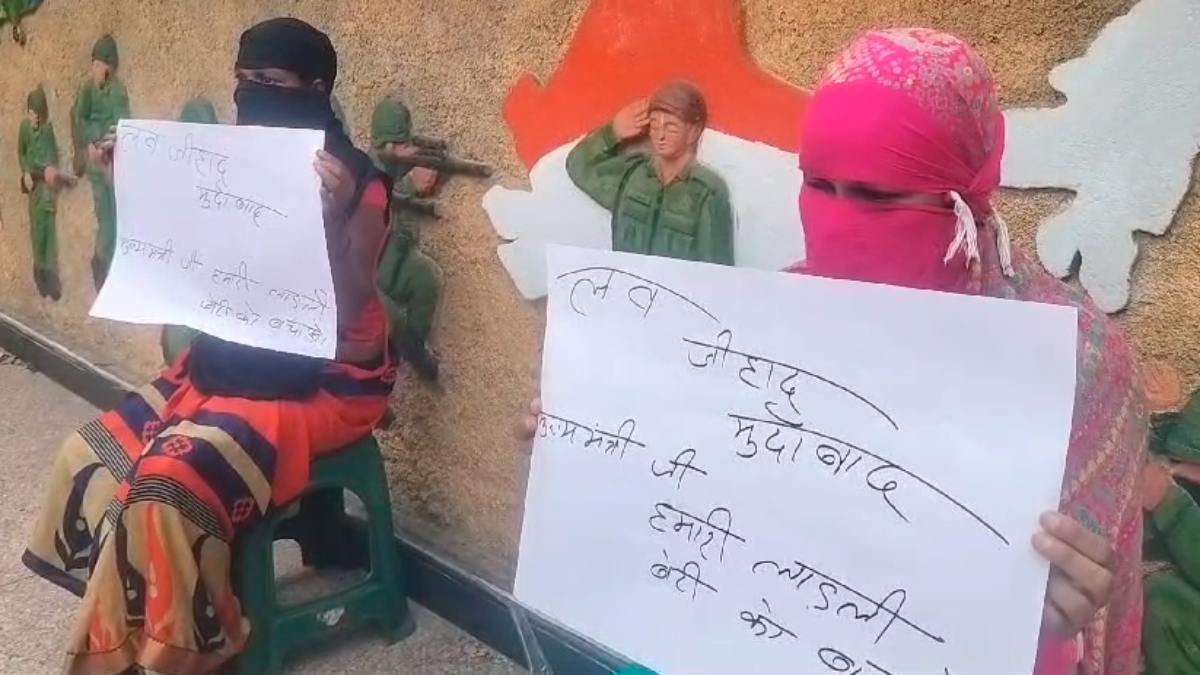 लव जीहाद
मुर्दाबाद
मुख्यमंत्री जी हमारी लाडली
बेटी को बचाओ।
लव
जीहाद
मुर्दाबाद
मुख्यमंत्री जी
हमारी लाड़ली
बेटी को